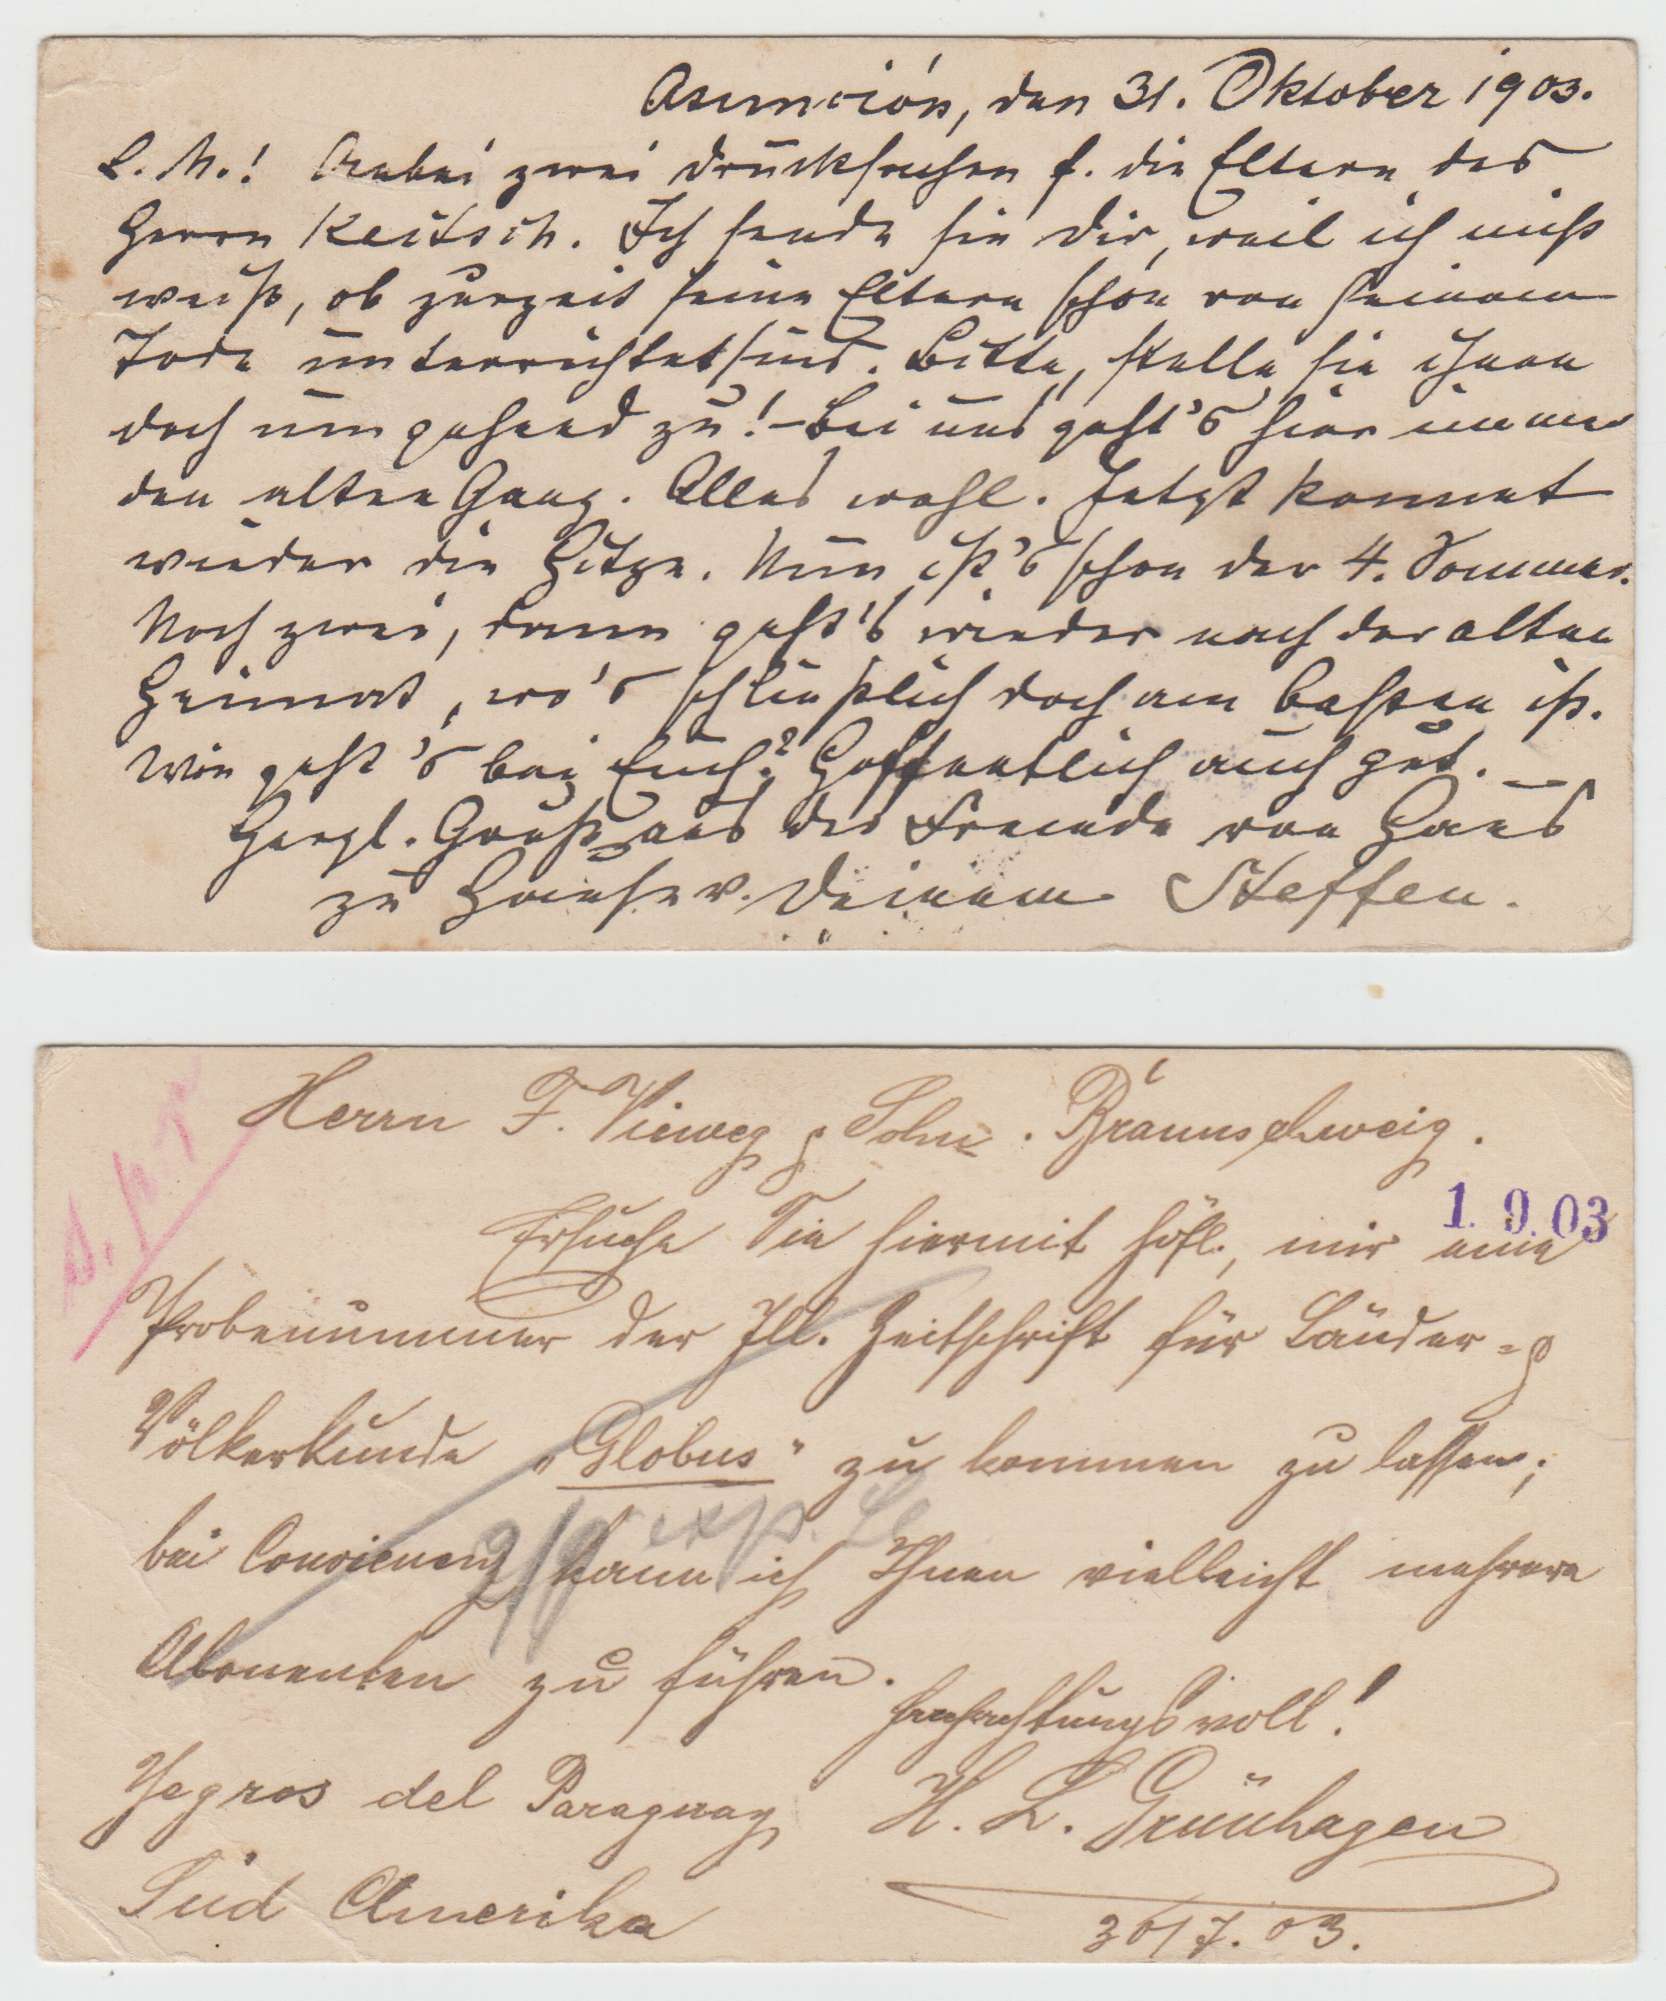 Asunción, den 31. Oktober 1903.
L. M.! Anbei zwei Drucksachen f. die Eltern des
Herrn Keitsch. Ich sende sie Dir, weil ich nicht
weiß, ob zurzeit seine Eltern schon von seinem
Tode unterrichtet sind. Bitte, stelle sie ihnen
doch umgehend zu! – Bei uns geht's hier immer
den alten Gang. Alles wohl. Jetzt kommt
wieder die Hitze. Nun ist's schon der 4. Sommer.
Noch zwei, dann geht's wieder nach der alten
Heimat, wo's schließlich doch am besten ist.
Wie geht's bei Euch? Hoffentlich auch gut. —
Herzl. Gruß aus der Fremde von Haus
zu Hause v. Deinem Steffen.
Herrn F. Vieweg & Sohn. Braunschweig.
1. 9. 03
Ersuche Sie hiermit höfl., mir eine
Probenummer der Ill. Zeitschrift für Länder- &
Völkerkunde „Globus" zu kommen zu lassen;
bei Convienenz kann ich Ihnen vielleicht mehrere
Abonenten zu führen.
Hochachtungsvoll!
Yegros del Paraguay H. L. Grünhagen
Süd Amerika
30/7. 03.